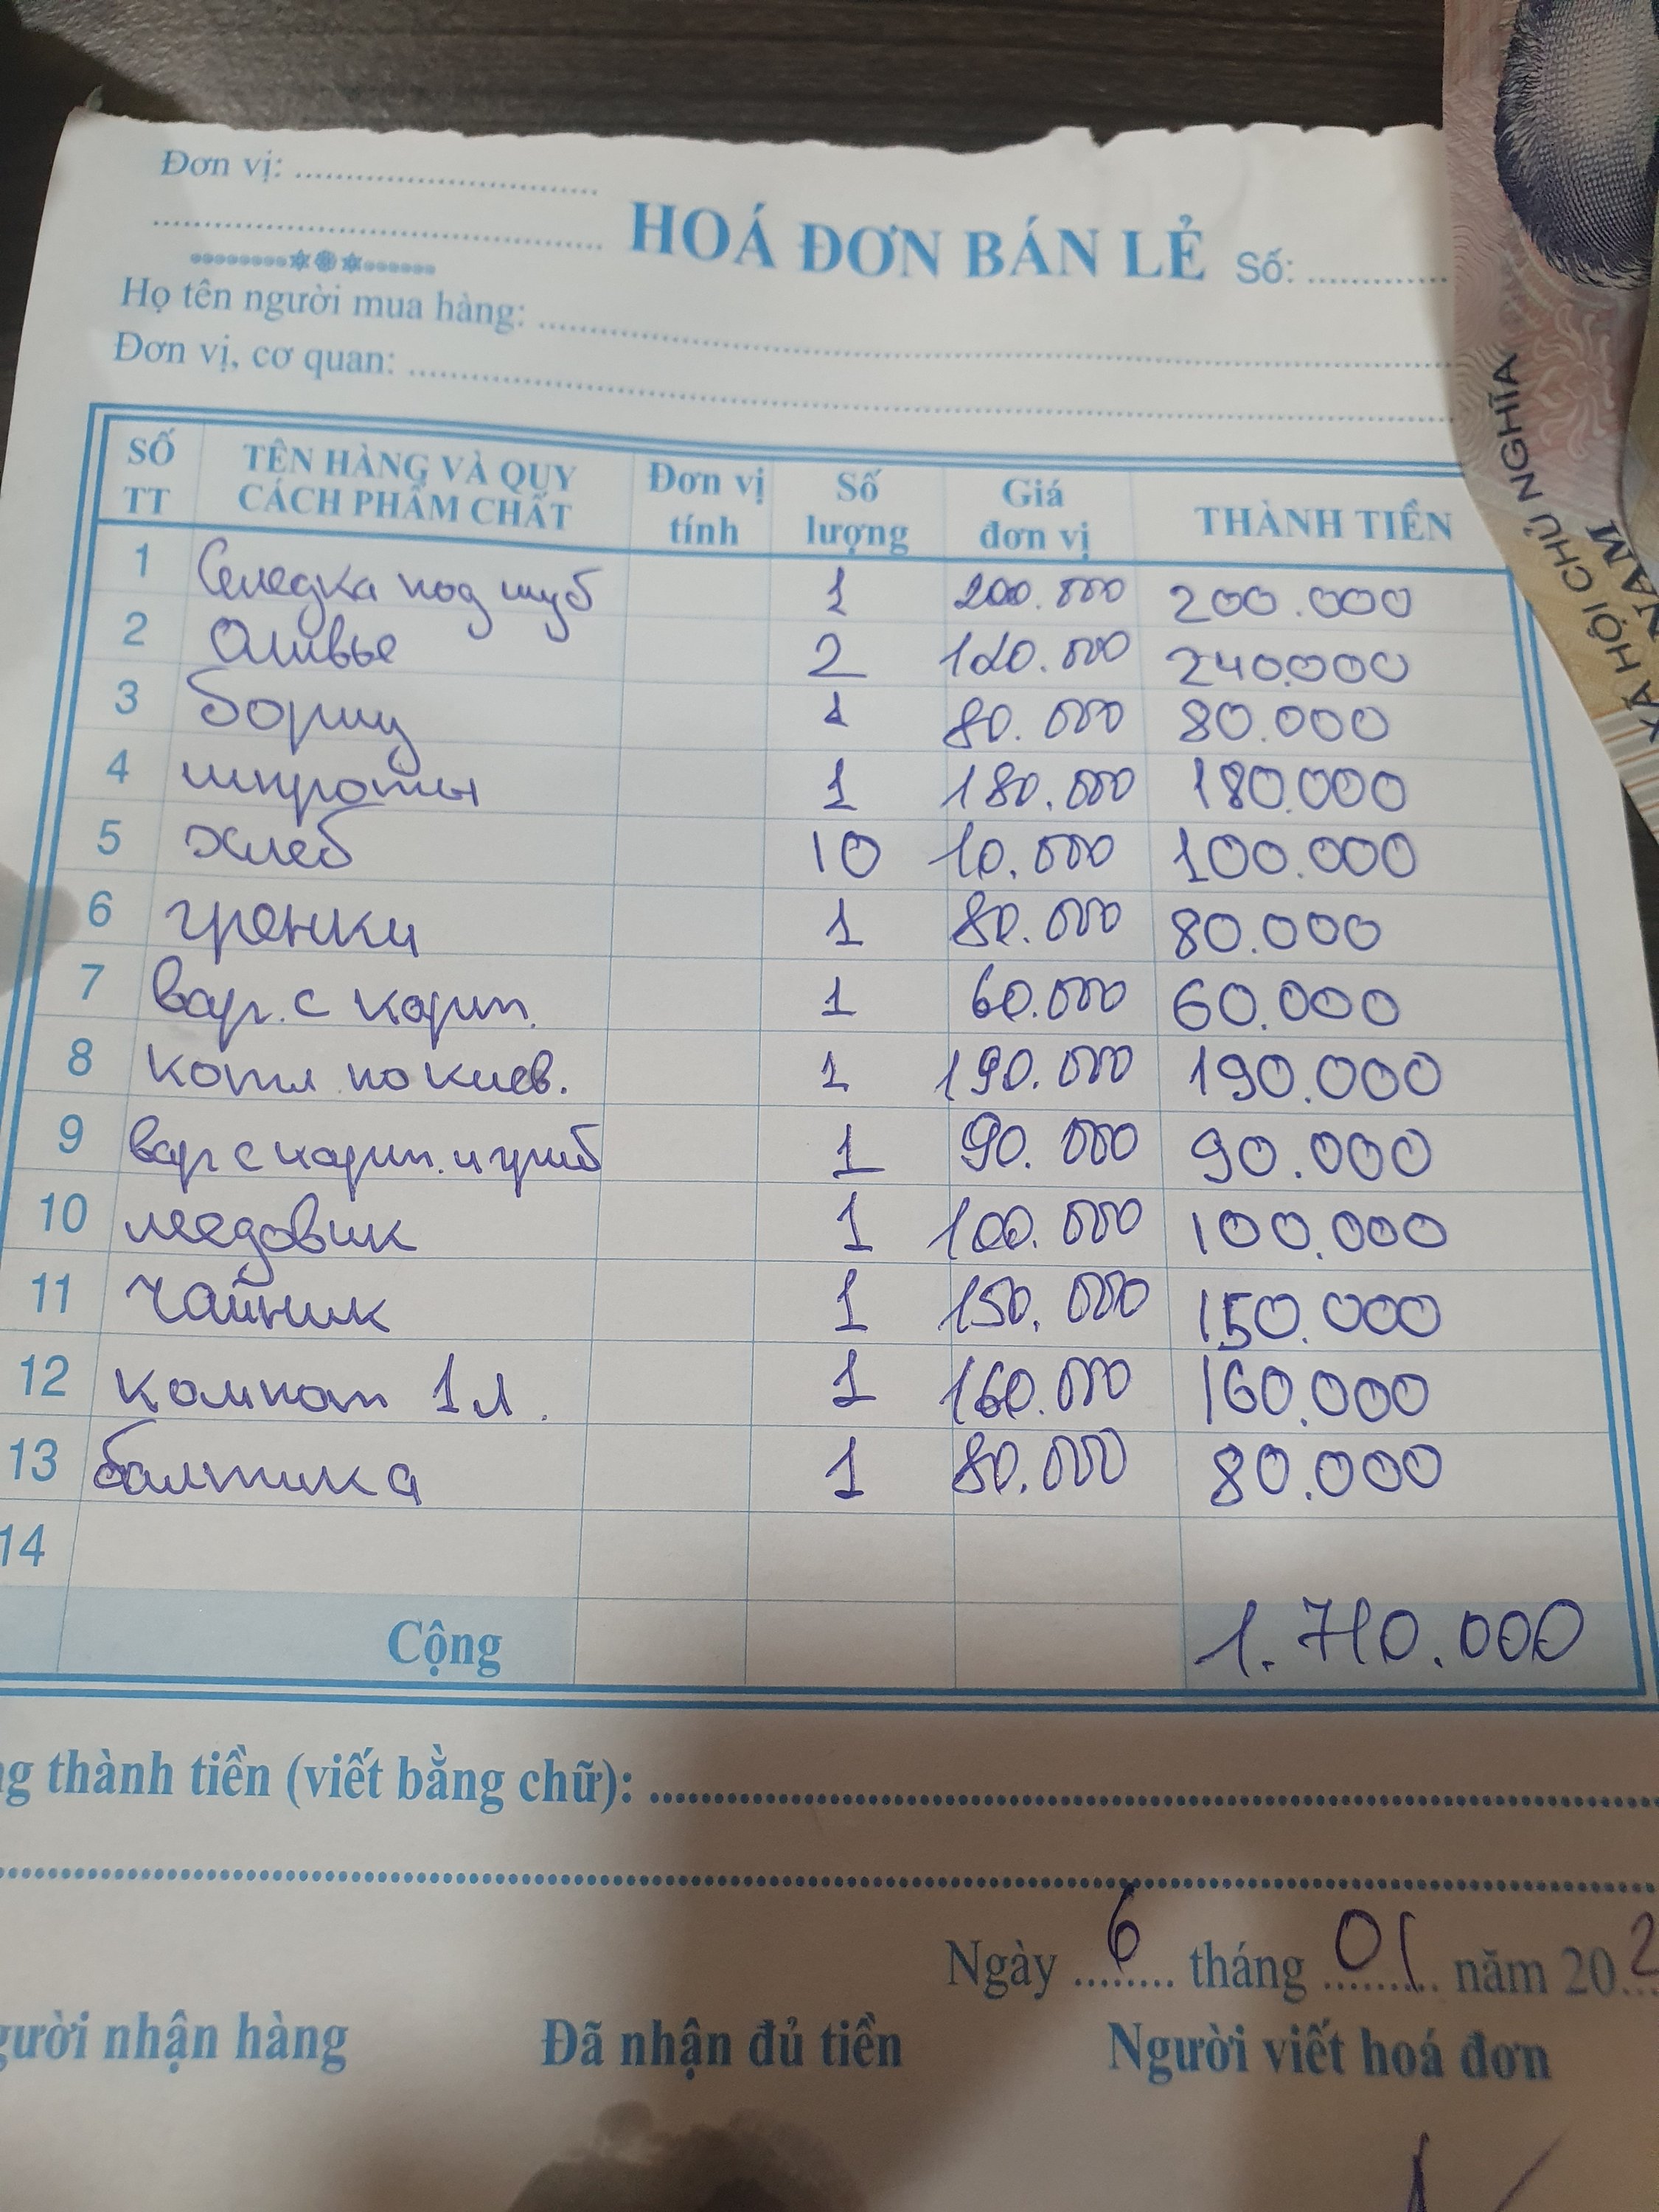 Đơn vị: ..............................
..............................
HOÁ ĐƠN BÁN LẺ Số: ..............
Họ tên người mua hàng: ..............................
Đơn vị, cơ quan: ..............................
SỐ TT TÊN HÀNG VÀ QUY CÁCH PHẨM CHẤT Đơn vị tính Số lượng Giá đơn vị THÀNH TIỀN
1 Селедка под шуб 1 200.000 200.000
2 Оливье 2 120.000 240.000
3 борщ 1 80.000 80.000
4 шпроты 1 180.000 180.000
5 хлеб 10 10.000 100.000
6 гренки 1 80.000 80.000
7 вар. с карт. 1 60.000 60.000
8 котл по киев. 1 190.000 190.000
9 вар с карт. и гриб 1 90.000 90.000
10 медовик 1 100.000 100.000
11 чайник 1 150.000 150.000
12 компот 1л. 1 160.000 160.000
13 балтика 1 80.000 80.000
14
Cộng 1.710.000
ng thành tiền (viết bằng chữ): ..............................
..............................
Ngày 6 tháng 01 năm 202
gười nhận hàng Đã nhận đủ tiền Người viết hoá đơn
XÃ HỘI CHỦ NGHĨA
NAM